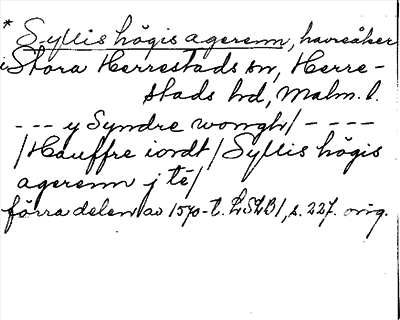 * Syllis högis agerenn, havreåker
i Stora Herrestads sn, Herre-
stads hd, Malm. l.
--- y Syndre wongh/ ----
/Hauffre iordt/ Syllis högis
agerenn j té/
förra delen av 1570-t. LSLB1, s. 227. orig.